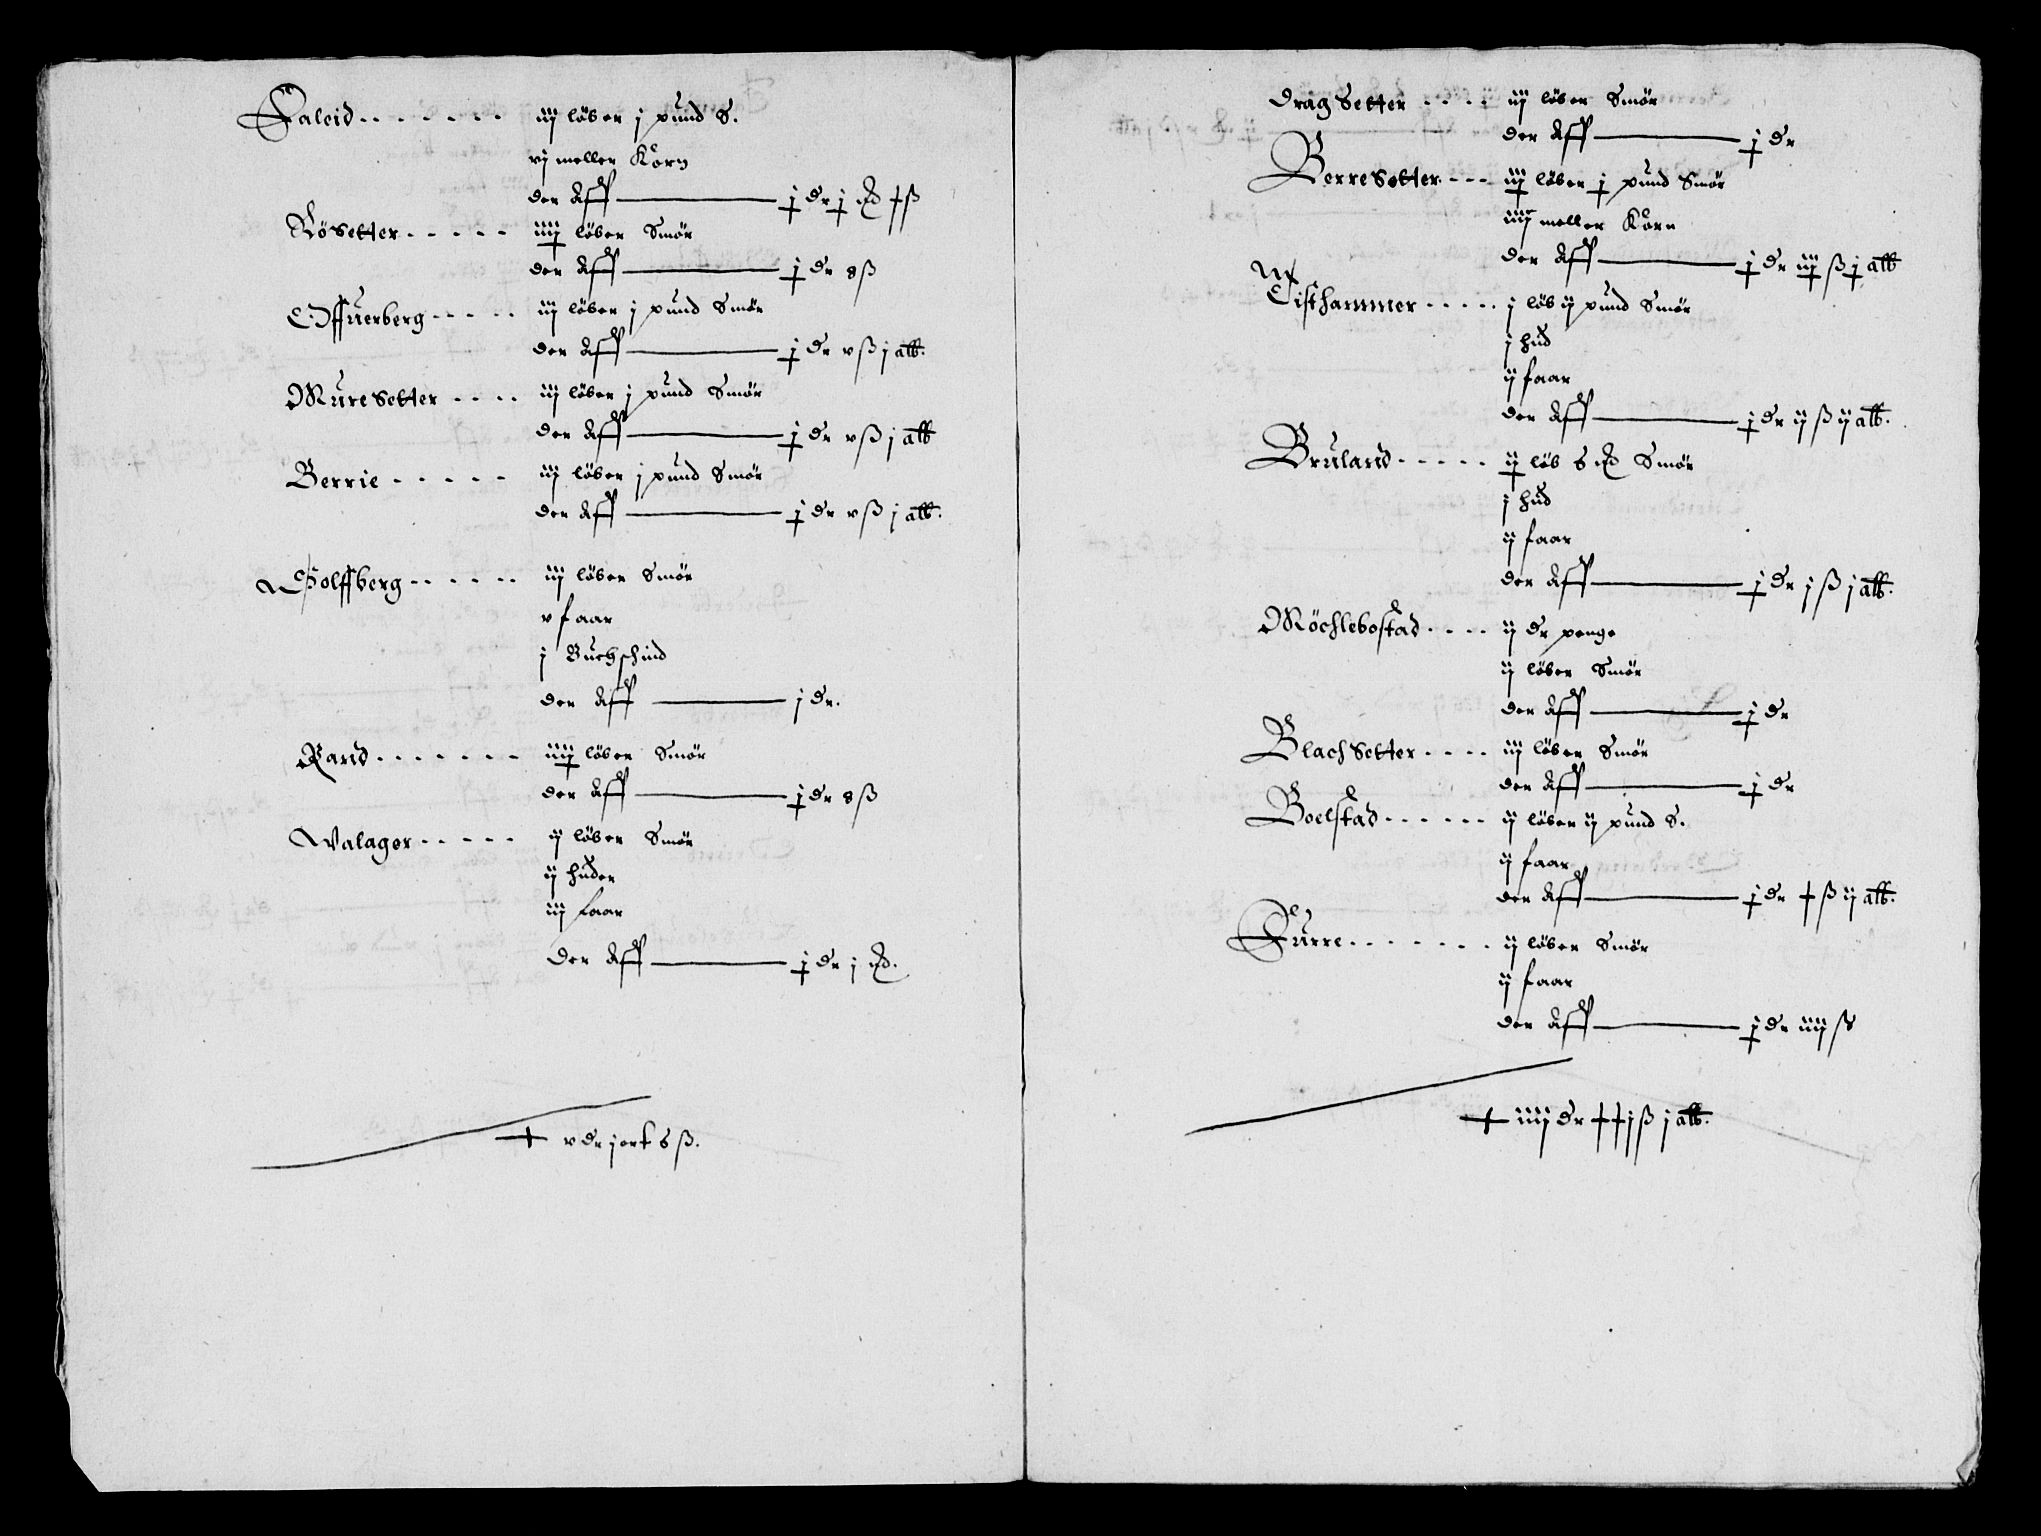 Faleid - - - - - - iij löber j pund S.
vj meller Korn
der Aff ——— j dr j ɱd x ß
Rösetter - - - - - iiij löber Smör
der Aff ——— j dr 8 ß
Offuerberg - - - - - iij löber j pund Smör
der Aff ——— j dr v ß j alb.
Muresetter - - - - iij löber j pund Smör
der Aff ——— j dr v ß j alb
Berrie - - - - - iij löber j pund Smör
der Aff ——— j dr v ß j alb.
Holffberg - - - - - iij löber Smör
v faar
j Buchschind
der Aff ——— j dr.
Rand - - - - - - - iiij löber Smör
der Aff ——— j dr 8 ß
Walager - - - - - ij löber Smör
ij huder
iij faar
der Aff ——— j dr j
v dr j ort 6 ß.
Dragsetter - - - - iij löber Smör
der Aff ——— j dr
Berresetter - - - iij löber j pund Smör
iiij meller Korn
der Aff ——— j dr iij ß j alb
Eisthammer - - - - - j löb ij pund Smör
j hud
ij faar
der Aff ——— j dr ij ß ij alb.
Bruland - - - - - ij löb 6 Smör
j hud
ij faar
der Aff ——— j dr j ß j alb.
Möchlebostad - - - - ij dr penge
ij löber Smör
der Aff ——— j dr
Blachsetter - - - - iij löber Smör
der Aff ——— j dr
Boelstad - - - - - - ij löber ij pund S.
ij faar
der Aff ——— j dr x ß ij alb.
Furre - - - - - - - ij löber Smör
ij faar
der Aff ——— j dr iiij ß
iiij dr xxj ß j alb.